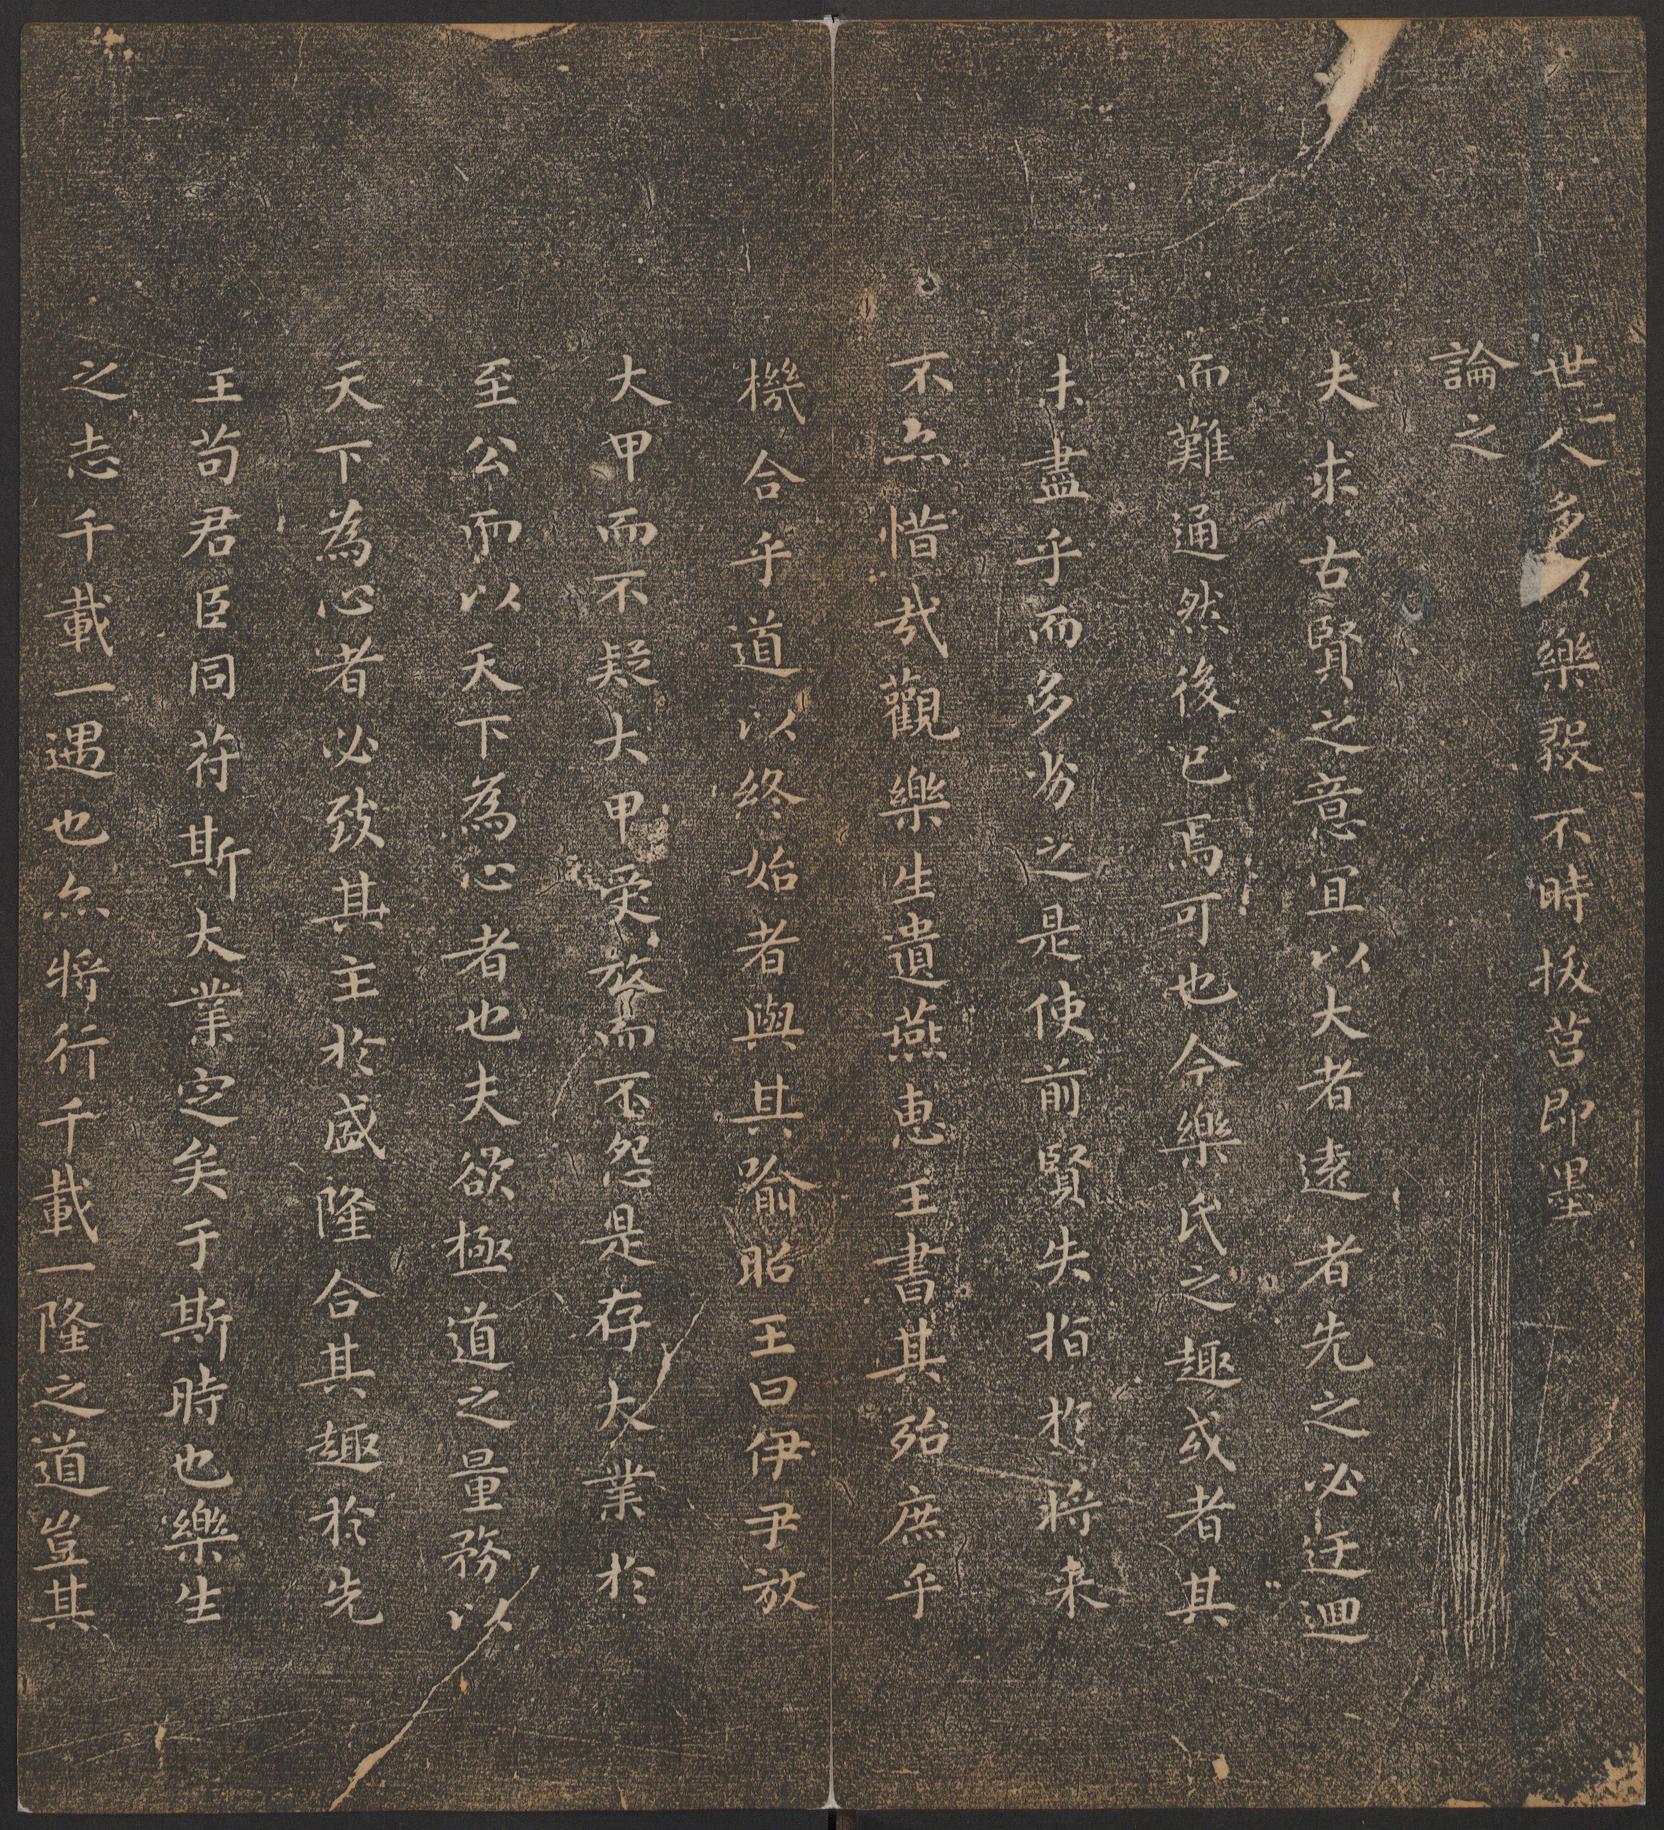 世人多以樂毅不時拔莒即墨
論之
夫求古賢之意宜以大者遠者先之必迂迴
而難通然後已焉可也今樂氏之趣或者其
未盡乎而多劣之是使前賢失指於将来
不亦惜哉觀樂生遺燕惠王書其殆庶乎
機合乎道以終始者與其喻昭王曰伊尹放
大甲而不疑大甲受放而不怨是存大業於
至公而以天下為心者也夫欲極道之量務以
天下為心者必致其主於盛隆合其趣於先
王苟君臣同苻斯大業定矣于斯時也樂生
之志千載一遇也亦将行千載一隆之道豈其